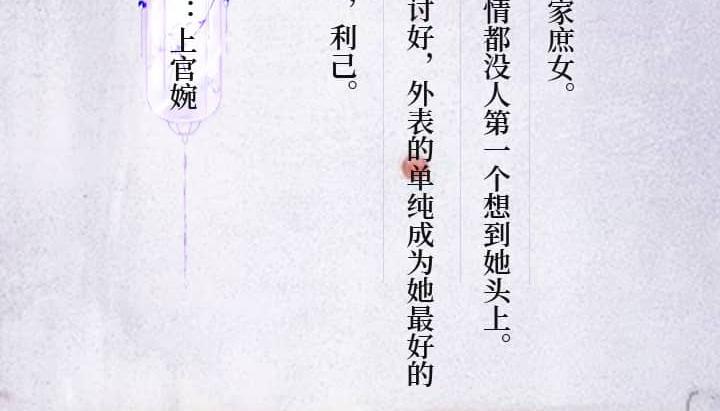 家庶女。
情都没人第一个想到她头上。
讨好，外表的单纯成为她最好的
，利己。
：上官婉